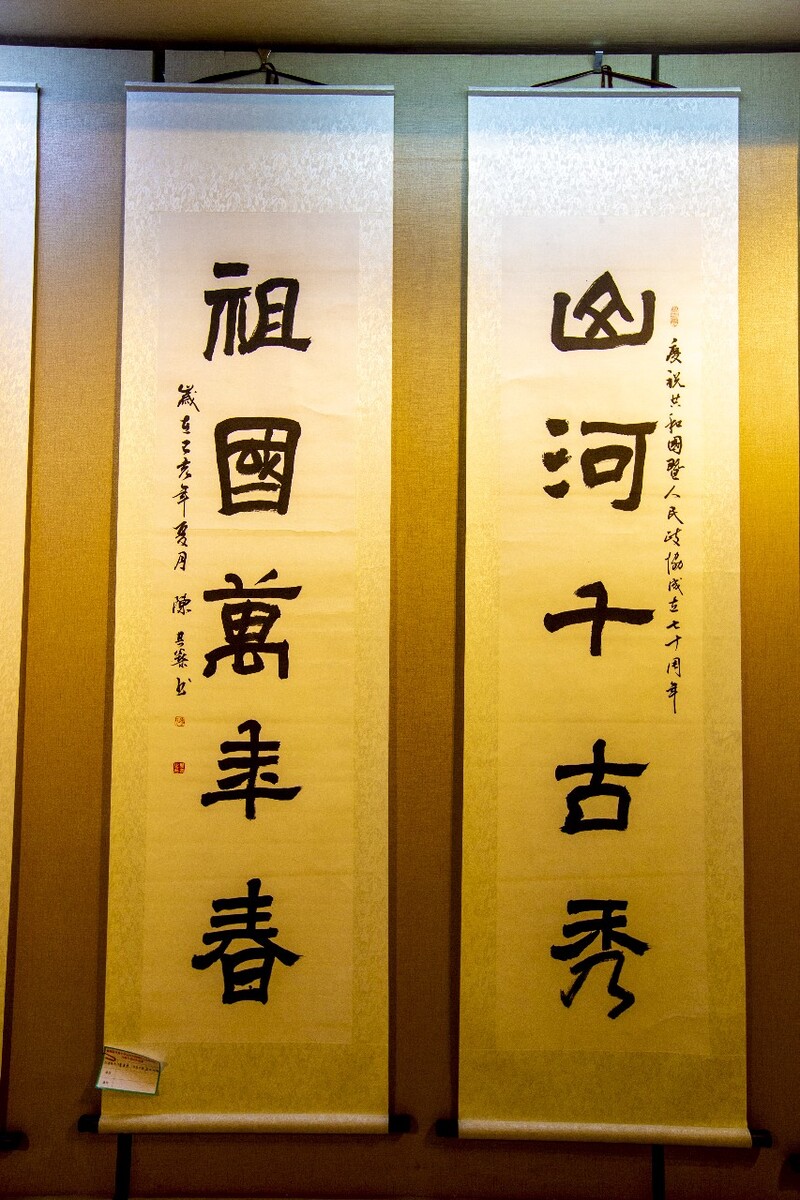 慶祝共和國暨人民政協成立七十周年
山河千古秀
祖國萬年春
歲在己亥年夏月 陳其書